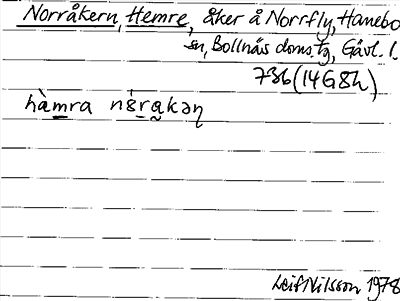 Norråkern, Hemre, åker å Norrfly, Hanebo
sn, Bollnäs doms.tg, Gävl. l.
736 (14G8h)
hàmra nórakəɳ
Leif Nilsson 1978